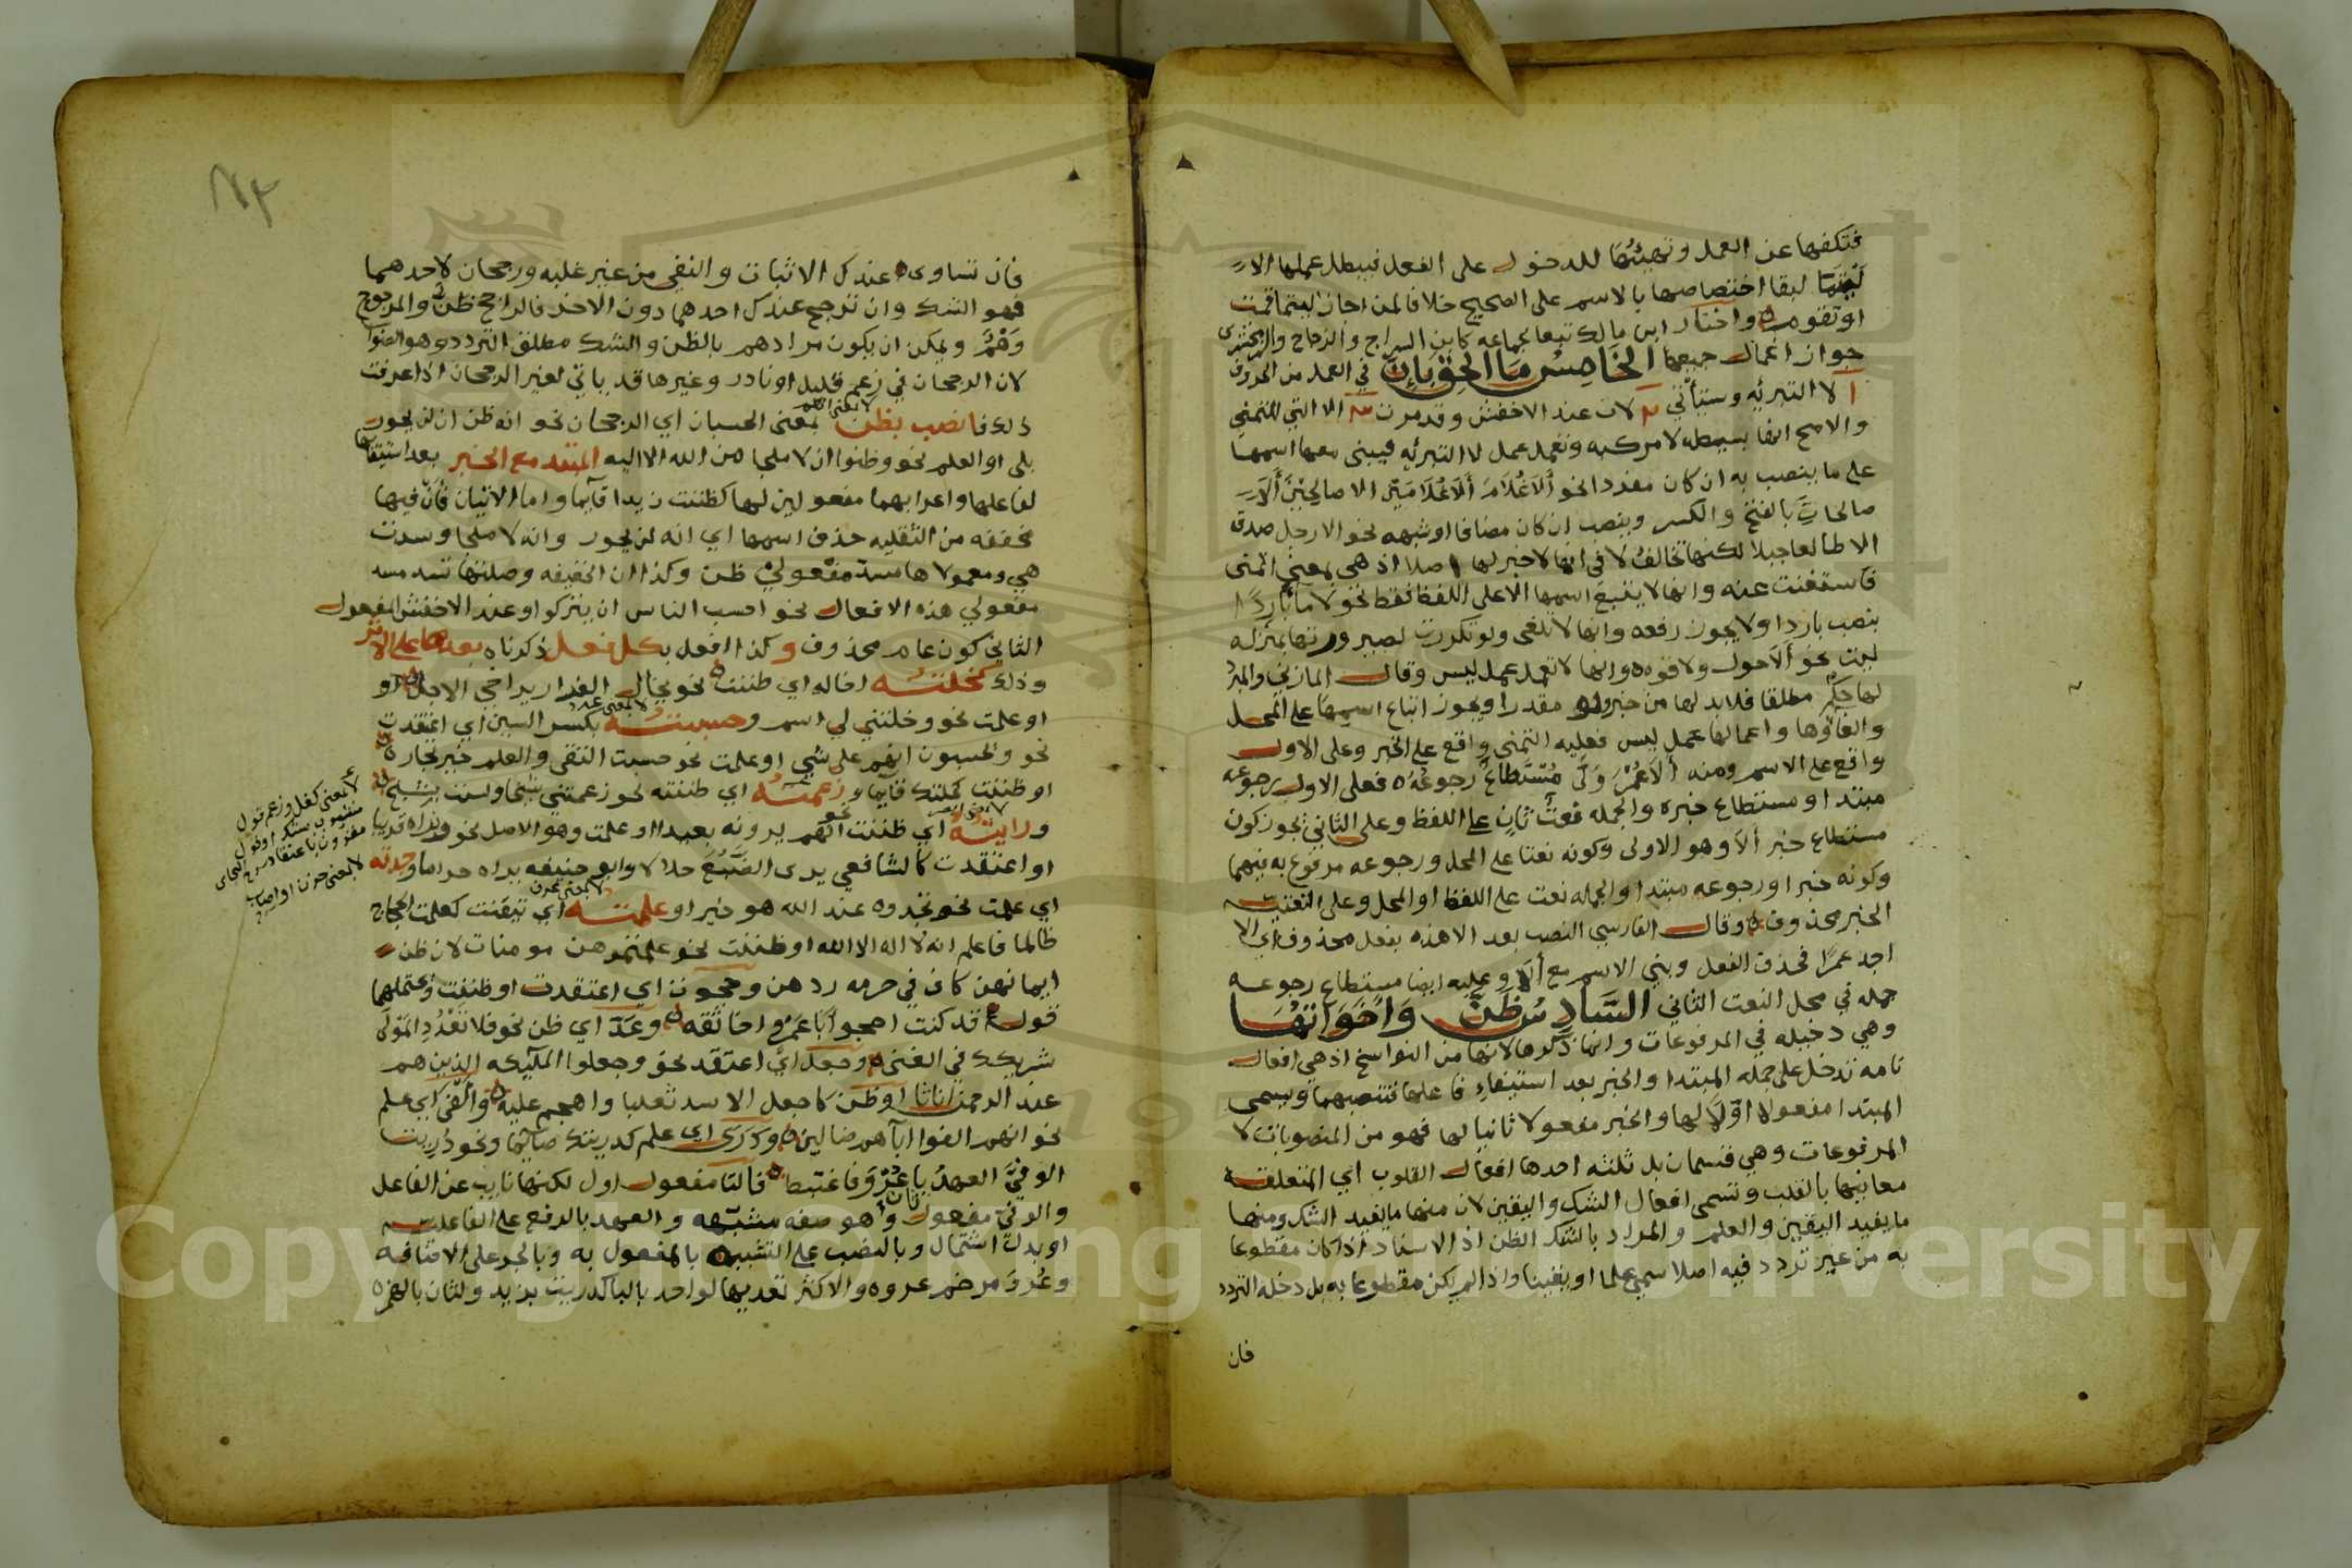 فتكفها عن العمل وتهيئها للدخول على الفعل فيبطل عملها الا
ليتما لبقا اختصاصها بالاسم على الصحيح خلافا لمن اجاز ليتما قمت
او تقوم واختار ابن مالك تبعا لجماعه كابن السراج والزجاج والزمخشري
جواز اعمال جميعها الخامس ما الحق بان في العمل من الحروف
ا لا التبرئه وستأتي ٢ لات عند الاخفش وقد مرت ٣ الا التي للتمني
والاصح انها بسيطه لا مركبه وتعمل عمل لا التبرئه فيبنى معها اسمها
على ما ينصب به ان كان مفردا نحو ألا غلام ألا غلامين الا صالحين ألا
صالحات بالفتح والكسر وينصب ان كان مضافا او شبهه نحو الا رجل صدق
الا طالعا جبلا لكنها تخالف لا في انها لا خبر لها اصلا اذ هي بمعنى اتمنى
فاستغنت عنه وانها لا يتبع اسمها الا على اللفظ فقط نحو لا ما باردا
بنصب باردا ولا يجوز رفعه وانها لا تلغى ولو تكررت لصيرورتها بمنزله
ليت نحو ألا حول ولا قوه وانها لا تعمل عمل ليس وقال المازني والمبرد
لها حكم مطلقا فلا بد لها من خبر ولو مقدرا ويجوز اتباع اسمها على المحل
والغاؤها واعمالها عمل ليس فعليه التمني واقع على الخبر وعلى الاول
واقع على الاسم ومنه ألا عمر ولى مستطاع رجوعه فعلى الاول رجوعه
مبتدا ومستطاع خبره والجمله نعت ثان على اللفظ وعلى الثاني يجوز كون
مستطاع خبر ألا وهو الاولى وكونه نعتا على المحل ورجوعه مرفوع به فيهما
وكونه خبرا ورجوعه مبتدا والجمله نعت على اللفظ او المحل وعلى النعتيه
الخبر محذوف وقال الفارسي النصب بعد الا هذه بفعل محذوف اي الا
اجد عمرا فحذف الفعل وبني الاسم مع ألا وعليه ايضا مستطاع رجوعه
جمله في محل النعت الثاني السادس ظن واخواتها
وهي دخيله في المرفوعات وانما ذكرها لانها من النواسخ اذ هي افعال
تامه تدخل على جمله المبتدا والخبر بعد استيفاء فاعلها فتنصبهما ويسمى
المبتدا مفعولا اولا لها والخبر مفعولا ثانيا لها فهو من المنصوبات لا
المرفوعات وهي قسمان بل ثلثه احدها افعال القلوب اي المتعلقة
معانيها بالقلب وتسمى افعال الشك واليقين لان منها ما يفيد الشك ومنها
ما يفيد اليقين والعلم والمراد بالشك الظن اذ الاسناد اذا كان مقطوعا
به من غير تردد فيه اصلا سمي علما او يقينا واذا لم يكن مقطوعا به بل دخله التردد
فان
فان تساوى عندك الاثبات والنفي من غير غلبه ورجحان لاحدهما
فهو الشك وان ترجح عندك احدهما دون الاخر فالراجح ظن والمرجوح
وهم ويمكن ان يكون مرادهم بالظن والشك مطلق التردد وهو الصواب
لان الرجحان في زعم قليل او نادر وغيرها قد ياتي لغير الرجحان اذا عرفت
ذلك فانصب بظن بمعنى الحسبان اي الرجحان نحو انه ظن ان لن يحور
بلى او العلم نحو وظنوا ان لا ملجا من الله الا اليه المبتدا مع الخبر بعد استيفائها
لفاعلها واعرابهما مفعولين لها كظننت زيدا قائما واما الايتان فان فيها
مخففه من الثقليه حذف اسمها اي انه لن يحور وانه لا ملجا وسدت
هي ومعمولاها مسد مفعولي ظن وكذا ان الخفيفه وصلتها تسد مسد
مفعولي هذه الافعال نحو احسب الناس ان يتركوا وعند الاخفش المفعول
الثاني كون عام محذوف وكذا افعل بكل فعل ذكرناه بعدها على الاثر
وذلك كخلته اخاله اي ظننت نحو يخال الفرار يراخي الاجل
او علمت نحو وخلتني لي اسم وحسبته بكسر السين اي اعتقدت
نحو ويحسبون انهم على شي او علمت نحو حسبت التقى والعلم خير تجارة
او ظننت كخلتك قائما وزعمته اي ظننته نحو زعمتني شيخا ولست بشيخ
ورايته اي ظننت نحو انهم يرونه بعيدا او علمت وهو الاصل نحو ونراه قريبا
او اعتقدت كالشافعي يرى الضبع حلالا وابو حنيفه يراه حراما ووجدته
اي علمت نحو تجدوه عند الله هو خيرا وعلمته اي تيقنت كعلمت الحجاج
ظالما فاعلم انه لا اله الا الله او ظننت نحو علمتموهن مومنات لان ظن
ايمانهن كاف في حرمه ردهن وحجوت اي اعتقدت او ظننت
قول قد كنت احجو ابا عمرو اخا ثقه وعد اي ظن نحو فلا تعدد المولى
شريكك في الغنى وجعل اي اعتقد نحو وجعلوا الملئكه الذين هم
عند الرحمن اناثا او ظن كاجعل الاسد ثعلبا واهجم عليه وألفى اي علم
نحو انهم الفوا اباهم ضالين ودرى اي علم كدريتك صائما ونحو دريت
الوفي العهد يا عرو فاغتبط فالتا مفعول اول لكنها نايب عن الفاعل
والوفي مفعول ثان وهو صفه مشبهه والعهد بالرفع على الفاعليه
او بدل اشتمال وبالنصب على التشبيه بالمفعول به وبالجر على الاضافه
وعرو مرخم عروه والاكثر تعديها لواحد بالبا كدريت بزيد ولثان بالهمزه